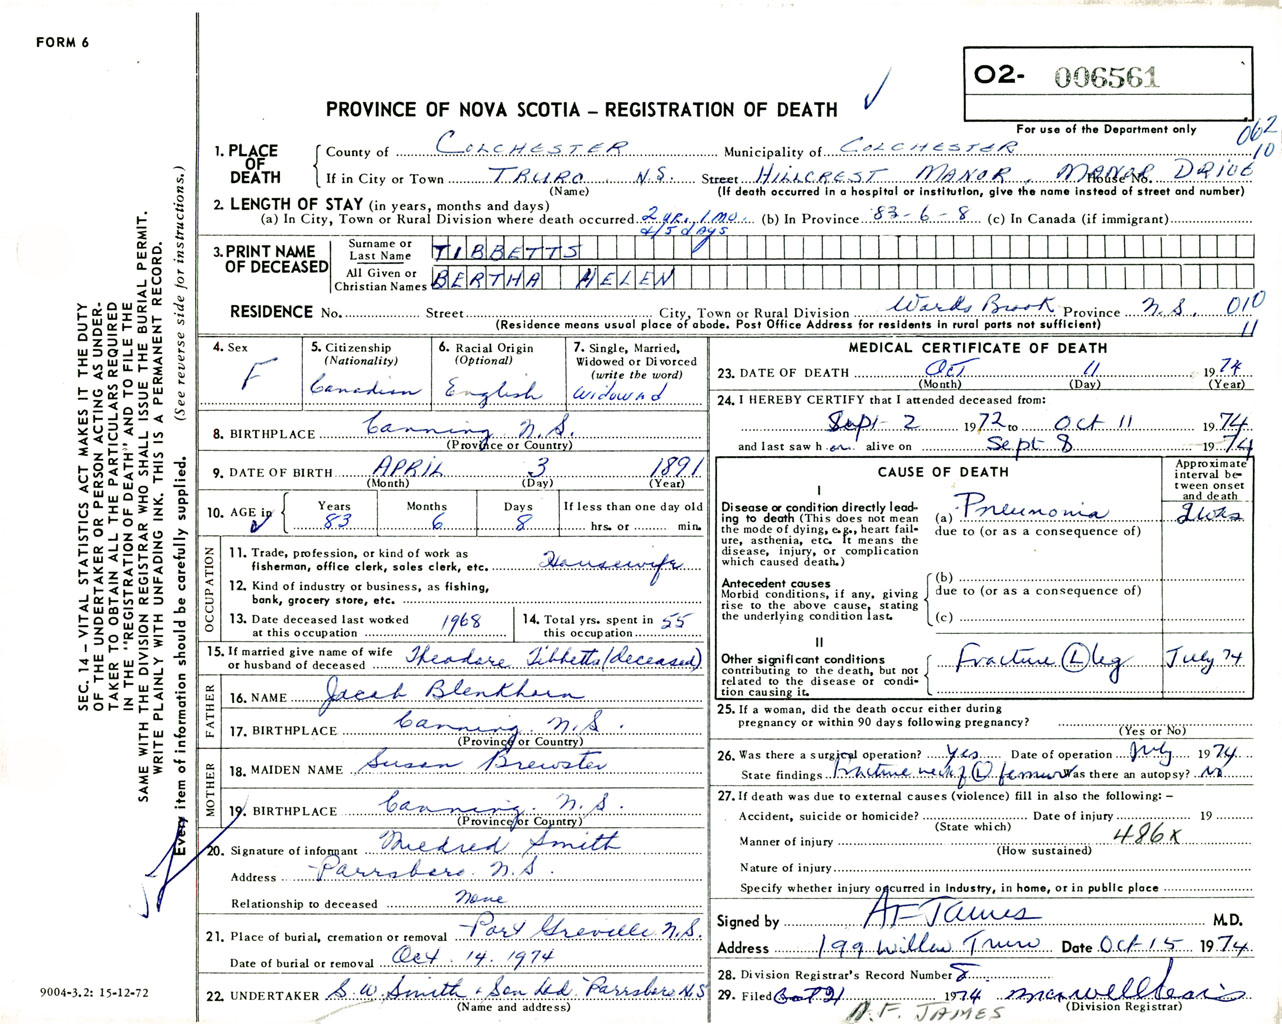 FORM 6
O2- 006561
PROVINCE OF NOVA SCOTIA – REGISTRATION OF DEATH
For use of the Department only
062
10
1. PLACE OF DEATH
County of COLCHESTER Municipality of COLCHESTER
If in City or Town TRURO N.S. Street HILLCREST MANOR, MANOR DRIVE House No.
(Name) (If death occurred in a hospital or institution, give the name instead of street and number)
2. LENGTH OF STAY (in years, months and days)
(a) In City, Town or Rural Division where death occurred 2 yr. 1 mo. (b) In Province 83-6-8 (c) In Canada (if immigrant)
days
3. PRINT NAME OF DECEASED
Surname or Last Name TIBBETTS
All Given or Christian Names BERTHA HELEN
RESIDENCE No. Street City, Town or Rural Division Wards Brook Province N.S. 010
(Residence means usual place of abode. Post Office Address for residents in rural parts not sufficient) 11
4. Sex F
5. Citizenship (Nationality) Canadian
6. Racial Origin (Optional) English
7. Single, Married, Widowed or Divorced (write the word) Widowed
8. BIRTHPLACE Canning N.S.
(Province or Country)
9. DATE OF BIRTH APRIL 3 1891
(Month) (Day) (Year)
10. AGE in Years 83 Months 6 Days 8 If less than one day old hrs. or min.
OCCUPATION
11. Trade, profession, or kind of work as fisherman, office clerk, sales clerk, etc. Housewife
12. Kind of industry or business, as fishing, bank, grocery store, etc.
13. Date deceased last worked at this occupation 1968
14. Total yrs. spent in this occupation 55
15. If married give name of wife or husband of deceased Theodore Tibbetts (deceased)
FATHER
16. NAME Jacob Blenkhorn
17. BIRTHPLACE Canning N.S.
(Province or Country)
MOTHER
18. MAIDEN NAME Susan Brewster
19. BIRTHPLACE Canning N.S.
(Province or Country)
20. Signature of informant Mildred Smith
Address Parrsboro N.S.
Relationship to deceased None
21. Place of burial, cremation or removal Port Greville N.S.
Date of burial or removal Oct. 14. 1974
22. UNDERTAKER S.W. Smith & Son Ltd. Parrsboro N.S.
(Name and address)
MEDICAL CERTIFICATE OF DEATH
23. DATE OF DEATH OCT 11 1974
(Month) (Day) (Year)
24. I HEREBY CERTIFY that I attended deceased from:
Sept 2 1972 to Oct 11 1974
and last saw h er alive on Sept 8 1974
CAUSE OF DEATH
Approximate interval between onset and death
I
Disease or condition directly leading to death (This does not mean the mode of dying, e.g., heart failure, asthenia, etc. It means the disease, injury, or complication which caused death.)
(a) Pneumonia 2 wks
due to (or as a consequence of)
Antecedent causes
Morbid conditions, if any, giving rise to the above cause, stating the underlying condition last.
(b)
due to (or as a consequence of)
(c)
II
Other significant conditions contributing to the death, but not related to the disease or condition causing it.
Fracture (L) leg July 74
25. If a woman, did the death occur either during pregnancy or within 90 days following pregnancy?
(Yes or No)
26. Was there a surgical operation? Yes Date of operation July 1974
State findings Fracture neck of (L) femur Was there an autopsy? No
27. If death was due to external causes (violence) fill in also the following: –
Accident, suicide or homicide? Date of injury 19
(State which)
Manner of injury 486X
(How sustained)
Nature of injury
Specify whether injury occurred in industry, in home, or in public place
Signed by AF James M.D.
Address 199 Willow Truro Date Oct 15 1974
28. Division Registrar's Record Number 8
29. Filed Oct 21 1974
(Division Registrar)
A.F. JAMES
SEC. 14 – VITAL STATISTICS ACT MAKES IT THE DUTY
OF THE UNDERTAKER OR PERSON ACTING AS UNDER-
TAKER TO OBTAIN ALL THE PARTICULARS REQUIRED
IN THE "REGISTRATION OF DEATH" AND TO FILE THE
SAME WITH THE DIVISION REGISTRAR WHO SHALL ISSUE THE BURIAL PERMIT.
WRITE PLAINLY WITH UNFADING INK. THIS IS A PERMANENT RECORD.
Every item of information should be carefully supplied. (See reverse side for instructions.)
9004-3.2: 15-12-72